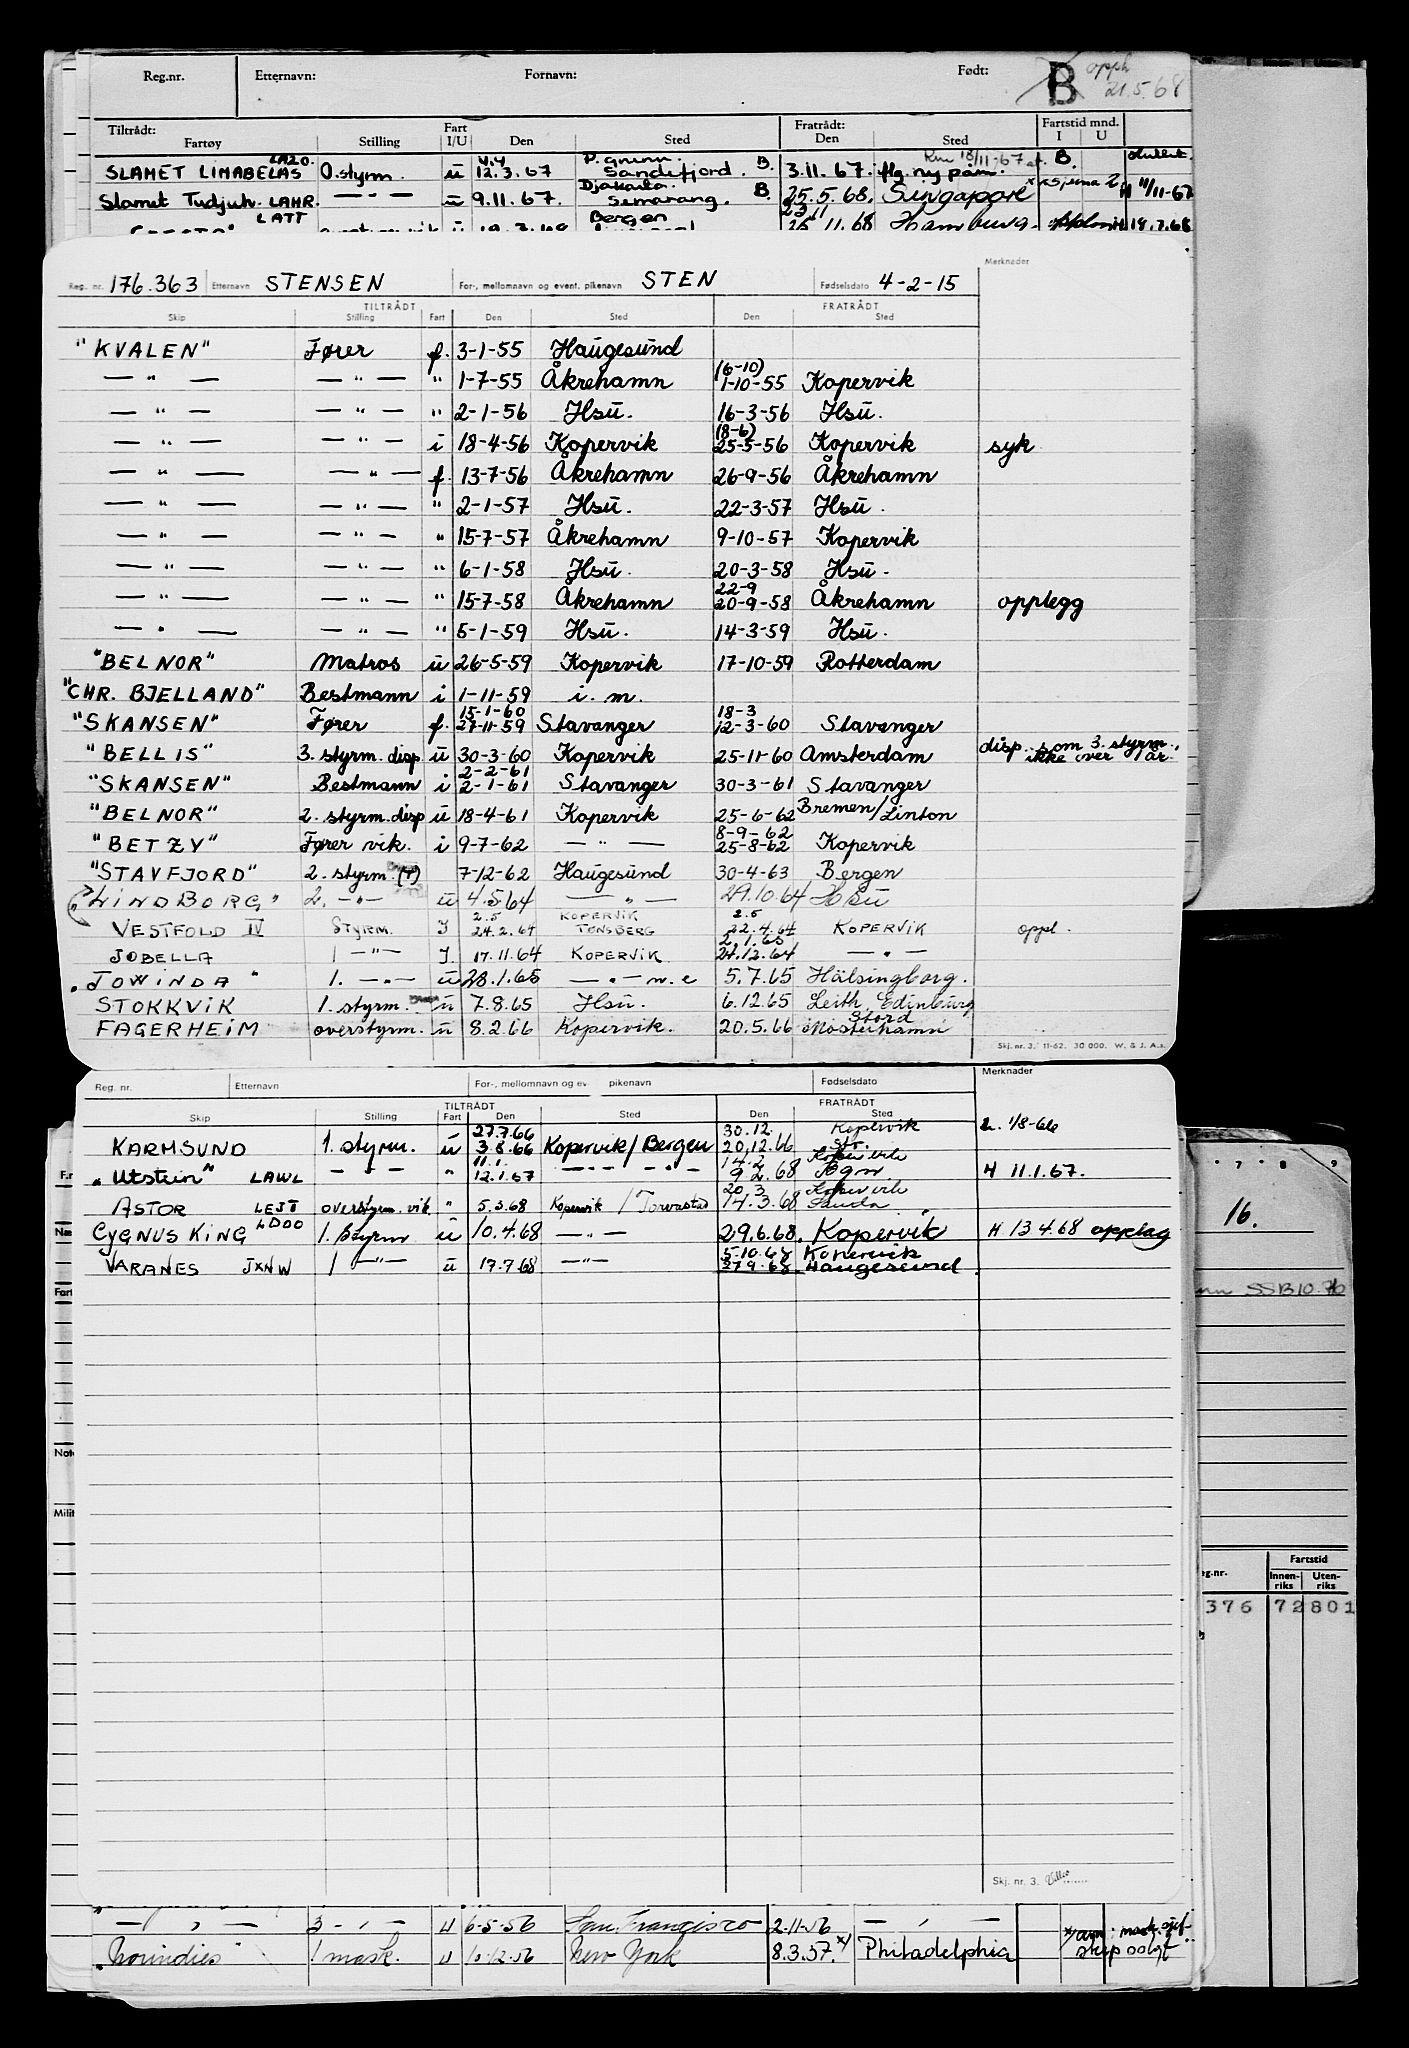 Reg.nr. Etternavn: Fornavn: Født: B opph 21.5.68
Tiltrådt: Fart Fratrådt: Fartstid mnd.
Fartøy Stilling I/U Den Sted Den Sted I U
SLAMET LIMABELAS LAZO. O.styrm. u 4.4 12.3.67 Sandefjord. B. 3.11.67. flg. ny påm. B.
Slamet Tudjuh. LAHR. — " — u 9.11.67. Djakarta. Semarang. B. 25.5.68. Singapore H 11/11-67
LATT Bergen 23 11 25 11.68 Hamburg. 19.7.68
Merknader
Reg. nr. 176.363 Etternavn STENSEN For-, mellomnavn og event. pikenavn STEN Fødselsdato 4-2-15
TILTRÅDT FRATRÅDT
Skip Stilling Fart Den Sted Den Sted
"KVALEN" Fører f. 3-1-55 Haugesund
— " — — " — " 1-7-55 Åkrehamn (6-10) 1-10-55 Kopervik
— " — — " — " 2-1-56 Hsu. 16-3-56 Hsu.
— " — — " — i 18-4-56 Kopervik (8-6) 25-5-56 Kopervik syk
— " — — " — f. 13-7-56 Åkrehamn 26-9-56 Åkrehamn
— " — — " — " 2-1-57 Hsu. 22-3-57 Hsu.
— " — — " — " 15-7-57 Åkrehamn 9-10-57 Kopervik
— " — — " — " 6-1-58 Hsu. 20-3-58 Hsu.
— " — — " — " 15-7-58 Åkrehamn 22-9 20-9-58 Åkrehamn opplegg
— " — — " — " 5-1-59 Hsu. 14-3-59 Hsu.
"BELNOR" Matros u 26-5-59 Kopervik 17-10-59 Rotterdam
"CHR. BJELLAND" Bestmann i 1-11-59 i. m.
"SKANSEN" Fører f. 15-1-60 27-11-59 Stavanger 18-3 12-3-60 Stavanger
"BELLIS" 3. styrm. disp u 30-3-60 Kopervik 25-11-60 Amsterdam disp. som 3. styrm., ikke over 1 år.
"SKANSEN" Bestmann i 2-2-61 2-1-61 Stavanger 30-3-61 Stavanger
"BELNOR" 2. styrm. disp u 18-4-61 Kopervik 25-6-62 Bremen/Linton
"BETZY" Fører vik. i 9-7-62 — " — 8-9-62 25-8-62 Kopervik
"STAVFJORD" 2. styrm. 7-12-62 Haugesund 30-4-63 Bergen
"LINDBORG" 2. — " — u 4.5.64 — " — 29.10.64 Hsu
VESTFOLD IV STYRM. I 2.5 24.2.64 KOPERVIK TØNSBERG 2.5 22.4.64 KOPERVIK oppl.
JOBELLA 1 — " — I. 17.11.64 KOPERVIK 2.1.65 21.12.64 — " —
"JOWINDA" 1. — " — u 28.1.65 — " — 5.7.65 Hälsingborg.
STOKKVIK 1. styrm. u 7.8.65 Hsu. 6.12.65 Leith, Edinburg
FAGERHEIM overstyrm. u 8.2.66 Kopervik. 20.5.66 Stord Mosterhamn
Skj. nr. 3. 11-62. 30 000. W. & J. A.s.
Reg. nr. Etternavn For-, mellomnavn og ev pikenavn Fødselsdato Merknader
TILTRÅDT FRATRÅDT
Skip Stilling Fart Den Sted Den Sted
KARMSUND 1. styrm. u 27.7.66 3.8.66 Kopervik/Bergen 30.12. 20.12.66 Kopervik 1/8-66
"Utstein" LAWL — " — " 11.1. 12.1.67 — " — — " — 14.2 9 2.68 Kopervik Bgn H 11.1.67.
ASTOR LEJT overstyrm. vik. " 5.3.68 Kopervik / Torvastad 20 3 14.3.68 Kopervik Sauda
CYGNUS KING LDOO 1. styrm u 10.4.68 — " — 29.6.68. Kopervik H 13 4.68 opplag
VARANES JXNW 1 — " — u 17.7.68 — " — 5.10.68 27 9.68 Kopervik Haugesund.
F.nr
Fart
Note
Milit
7 8 9
16.
SSB 10.
eg.nr. Fartstid
Innen- riks Uten- riks
376 72 801
Skj. nr. 3.
— " — 3 — " — u 6-5-56 San Francisco 2-11-56 — " —
"Norindies" 1 mask. u 10-12-56 New York 8.3.57. x) Philadelphia skip solgt